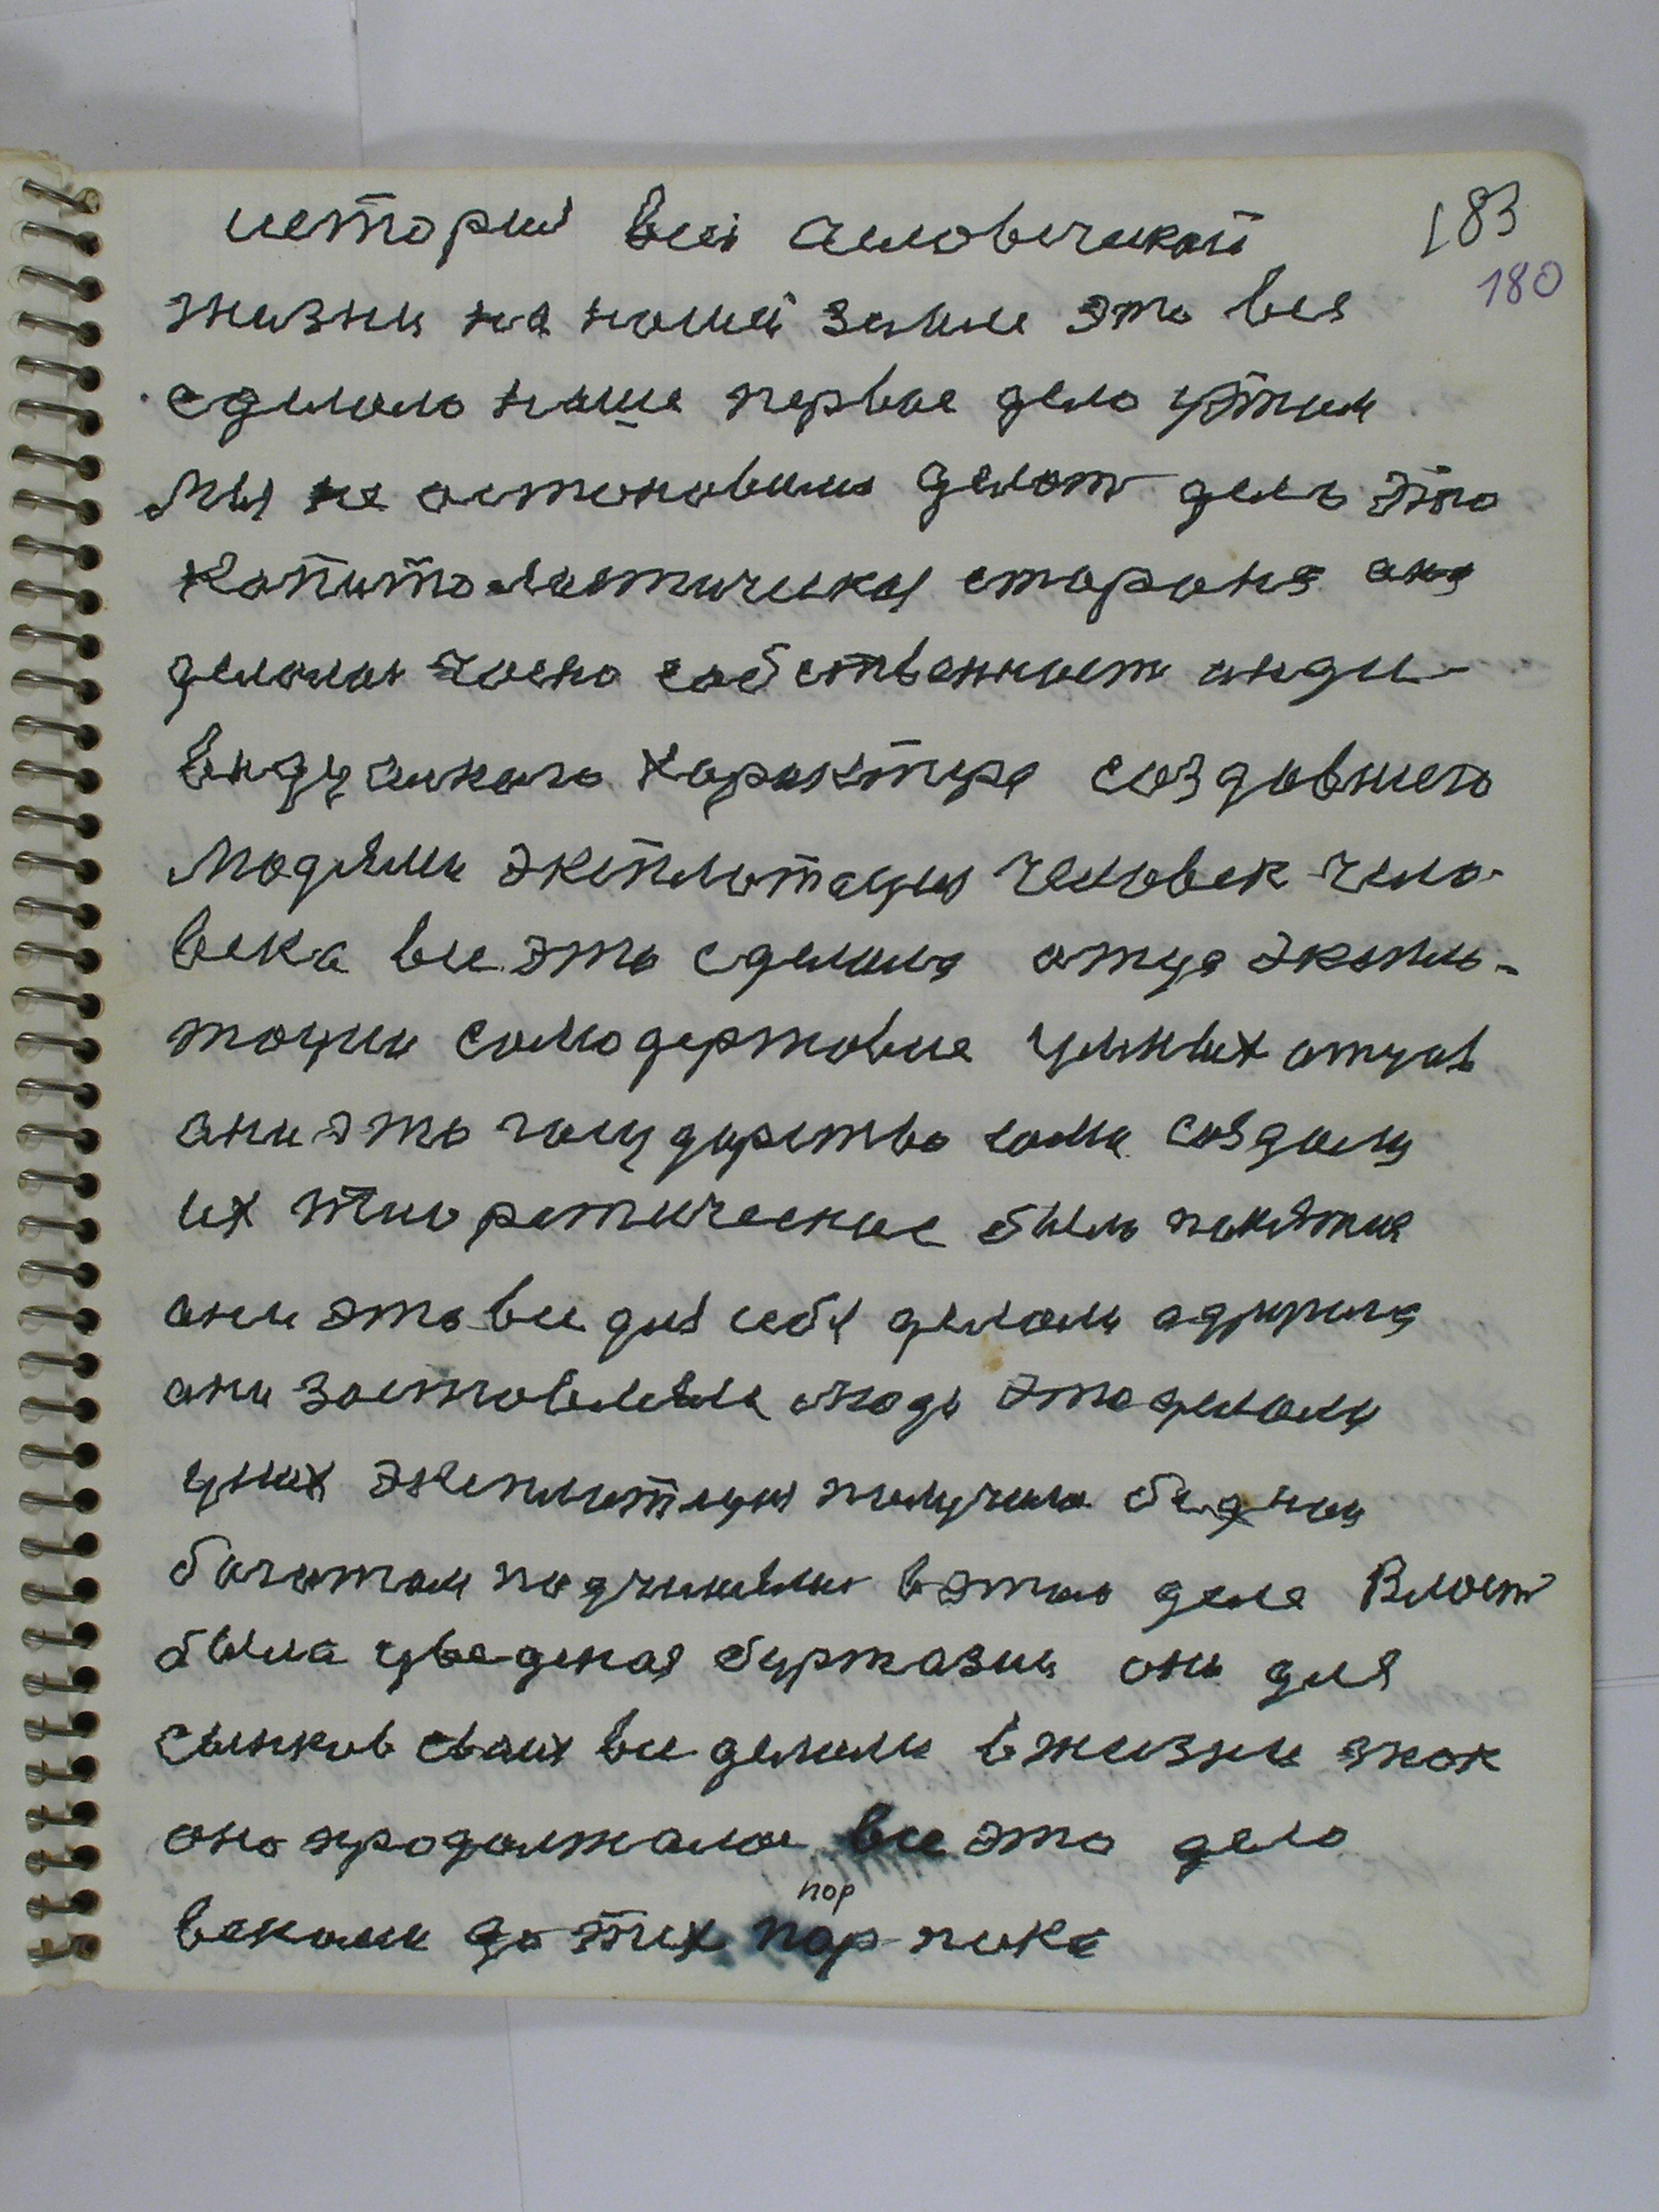 183
180
история всей человеческой
жизни на нашей земле это вся
сделало наше первое дело этим
мы не остоновилися делат дело это
капитолистическая старана ана
делалася часно собственост инди-
видуалнаго характера создавшего
людями эксплотацыя человек чело-
века все это сделали отца эксплы-
тацыи самодержовие умных отцов
ани это государство сами создали
их тиоретическое было панятия
ани это все для себя делали
ани заставляли людей это делали
у них эксплытацыя получила бедныи
багатам падчинялис в этом деле Власт
была уведеная буржазии они для
сынков своих все делали в жизни
оно продалжалос все это дело
пор
веками до тих пор пака